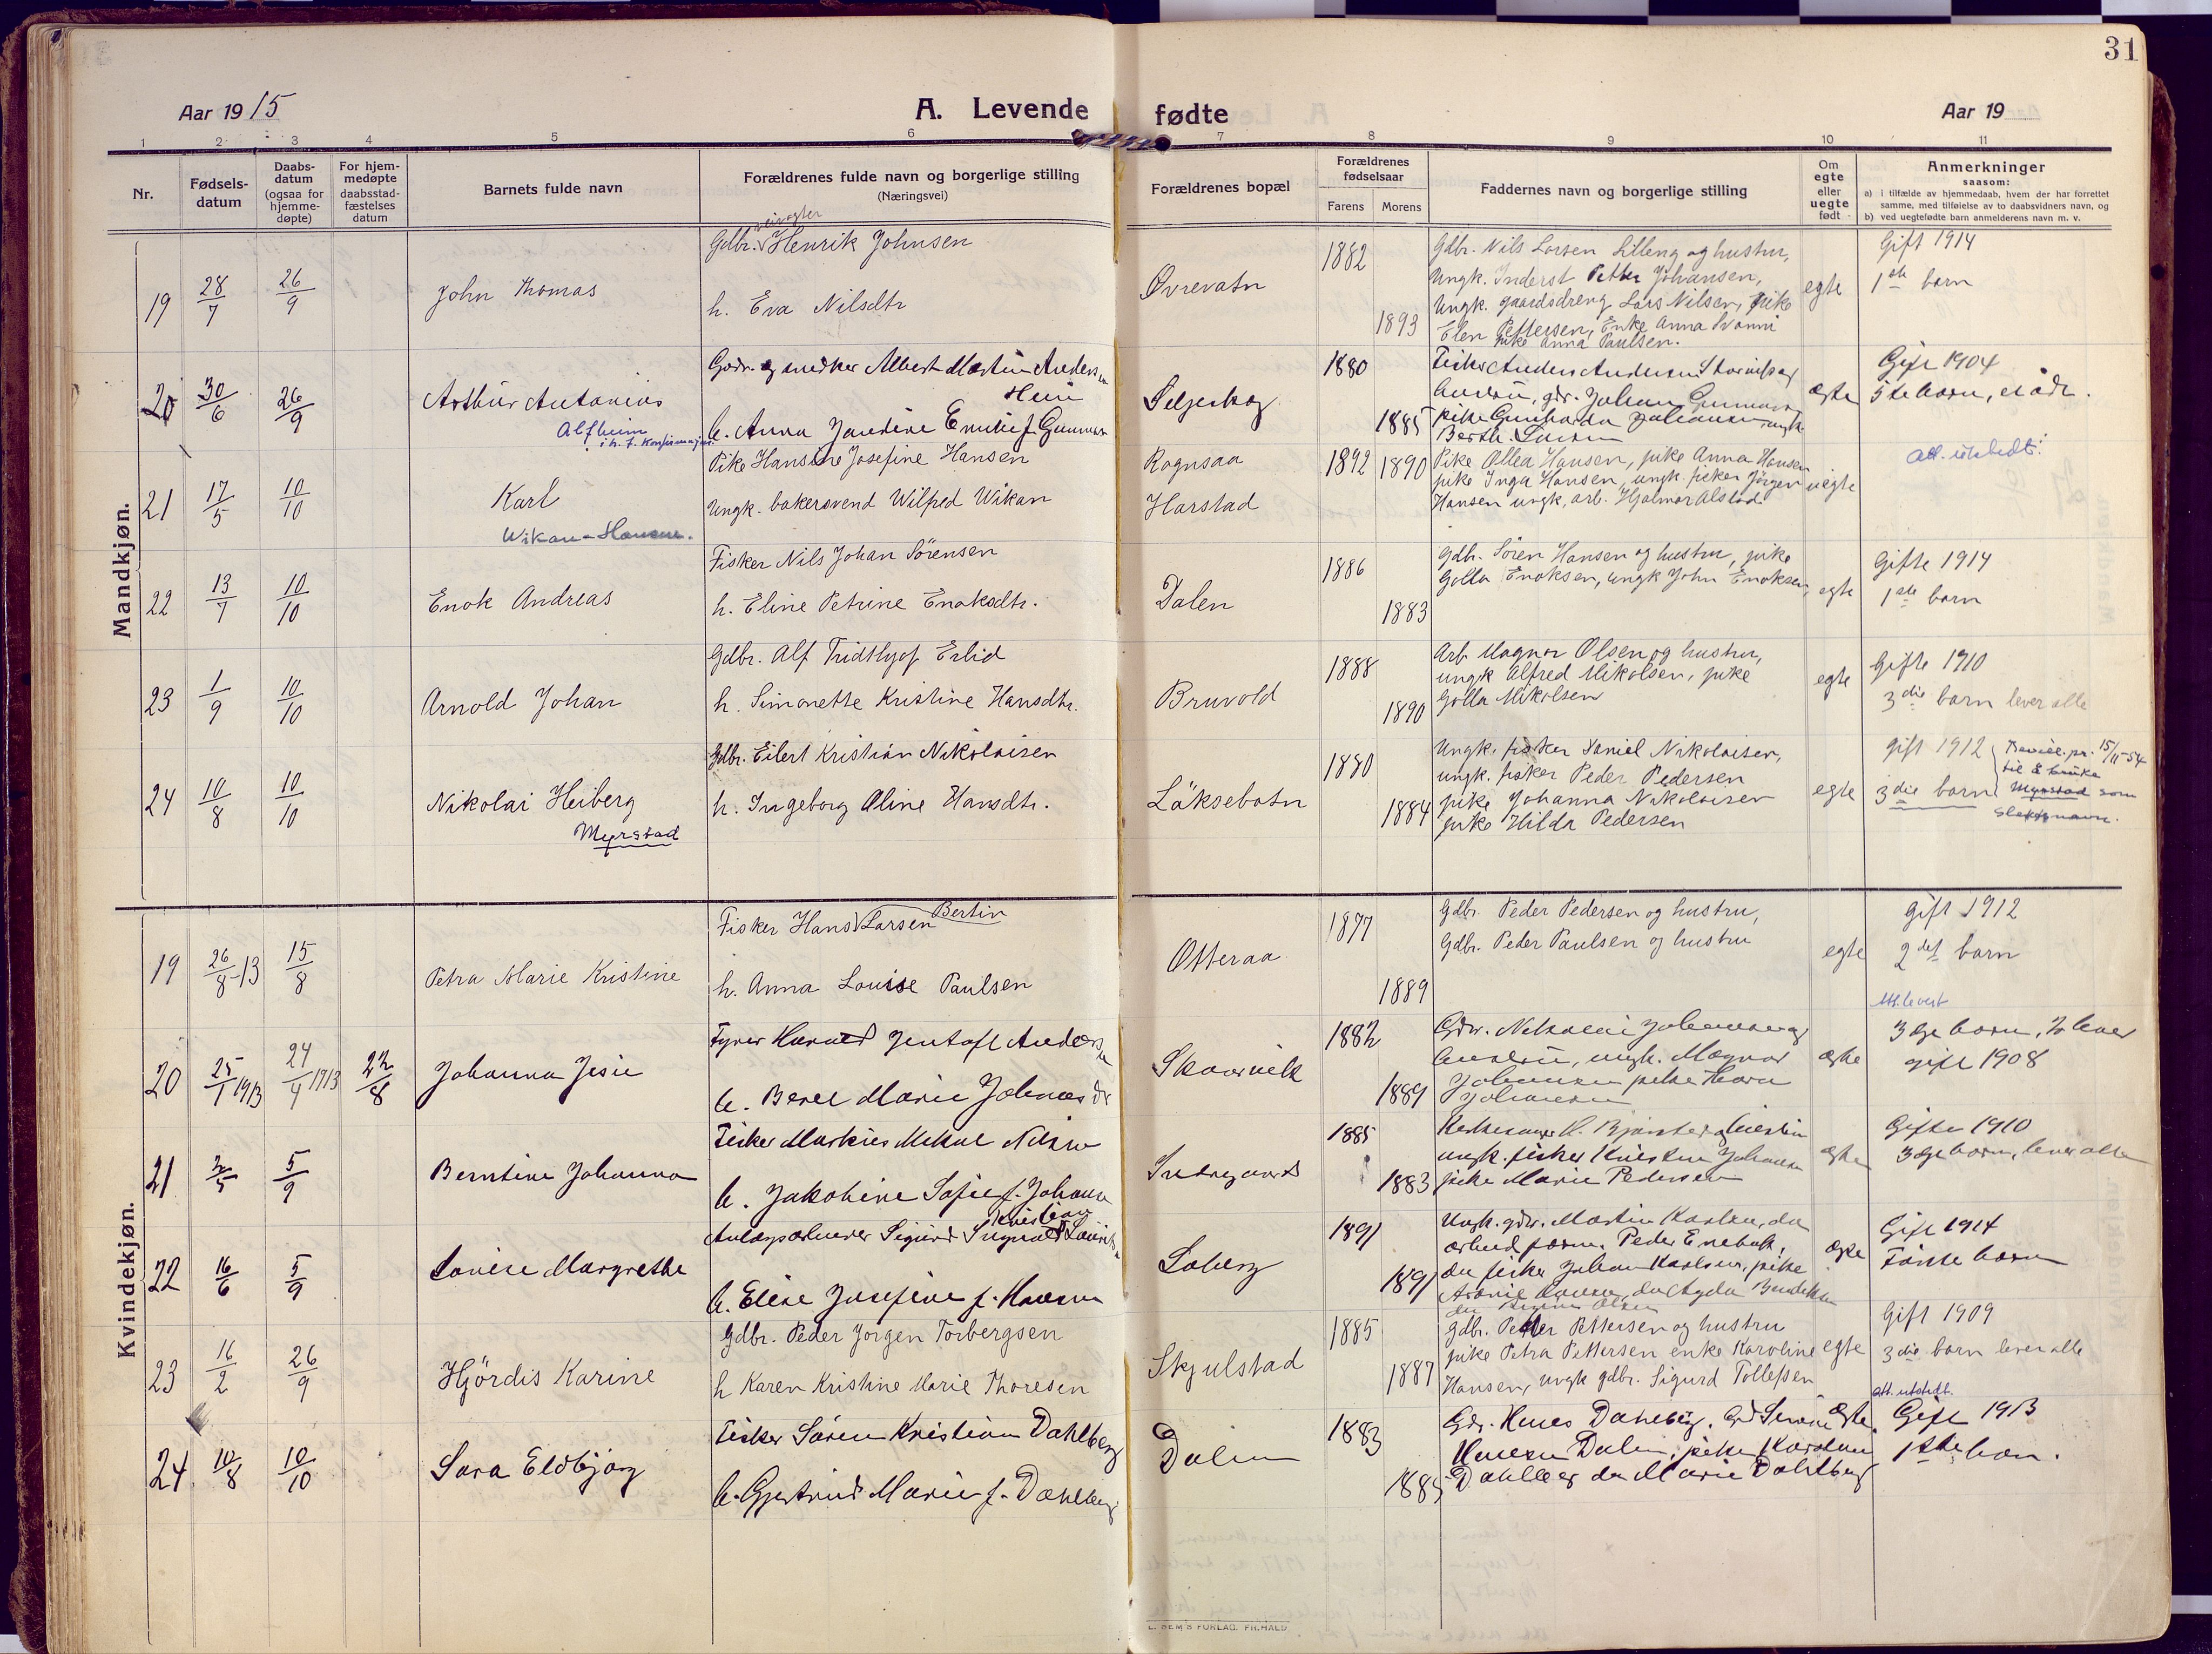 31
Aar 1915
A. Levende fødte
Aar 19
1 2 3 4 5 6 7 8 9 10 11
Nr.
Fødsels-datum
Daabs-datum (ogsaa for hjemme-døpte)
For hjem-medøpte daabsstad-fæstelses datum
Barnets fulde navn
Forældrenes fulde navn og borgerlige stilling
(Næringsvei)
Forældrenes bopæl
Forældrenes fødselsaar
Farens Morens
Faddernes navn og borgerlige stilling
Om egte eller uegte født
Anmerkninger
saasom:
a) i tilfælde av hjemmedaab, hvem der har forrettet
samme, med tilføielse av to daabsvidners navn, og
b) ved uegtefødte barn anmelderens navn m. v.
Mandkjøn.
19 28/7 26/9 John Thomas
Gdbr. Henrik Johnsen
h. Eva Nilsdtr
Øvrevatn
1882
1893
Gdbr. Nils Larsen Lilleng og hustru,
Ungk. Inderst Petter Johansen,
Ungk. gaardsdreng Lars Nilsen, pike
Elen Pettersen, Enke Anna
pike Anna Paulsen.
egte
Gift 1914
1ste barn
20 30/6 26/9 Arthur Antonius
Alfheim
i h. t. Konfirmasjon
Gdbr. og snedker Albert Martin Andersen
h. Anna Jandine Emilie f. Gunnarsen
Seljeskog
1880
1885
Fisker Anders Andersen
gdr. Johan
pike Gunharda Johansen, ungk
Berth. Larsen
egte
Gift 1904
5te barn,
21 17/5 10/10 Karl
Wikan-Hansen.
Pike Hansine Josefine Hansen
Ungk. bakersvend Wilfred Wikan
Rognsaa
Harstad
1892 1890
Pike Ollea Hansen, pike Anna Hansen
pike Inga Hansen, ungk. fisker Jörgen
Hansen ungk. arb. Hjalmar Alstad
uegte
Att. utstedt.
22 13/7 10/10 Enok Andreas
Fisker Nils Johan Sörensen
h. Eline Petrine Enoksdtr.
Dalen
1886
1883
Gdbr. Sören Hansen og hustru, pike
Golla Enoksen, ungk John Enoksen,
egte
Gifte 1914
1ste barn
23 1/9 10/10 Arnold Johan
Gdbr. Alf Fridthjof Erlid
h. Simonette Kristine Hansdtr.
Bruvold
1888
1890
Arb. Magnar Olsen og hustru,
ungk Alfred Mikalsen, pike
Golla Mikalsen
egte
Gifte 1910
3die barn lever alle
24 10/8 10/10 Nikolai Heiberg
Myrstad
Gdbr. Eilert Kristian Nikolaisen
h. Ingeborg Aline Hansdtr.
Läksebotn
1880
1884
Ungk. fisker Daniel Nikolaisen,
ungk. fisker Peder Pedersen
pike Johanna Nikolaisen
pike Hilda Pedersen
egte
gift 1912
3die barn
Bevill. pr. 15/11-54
til å bruke
Myrstad som
slektsnavn.
Kvindekjøn.
19 26/8-13 15/8 Petra Marie Kristine
Fisker Hans Larsen Bertin
h. Anna Louise Paulsen
Otteraa
1877
1889
Gdbr. Peder Pedersen og hustru,
Gdbr. Peder Paulsen og hustru
egte
gift 1912
2det barn
20 25/1 1913 24/4 1913 22/8 Johanna Jesie
Gentoft Andersen
h. Berel Marie Johnasdr
Skaarvik
1882
1889
Gdbr. Nikolai Johansen og
ungk. Magnar
Johansen pike Hara
Johansen
egte
3dje barn, 2 lever
gift 1908
21 2/5 5/9 Berntine Johanna
Fisker Markus Mikal Nilsen
h. Jakobine Sofie f. Johansen
Indregaard
1885
1883
Kirkesanger H.
ungk. fisker Kristian Johansen
pike Marie Pedersen
egte
Gifte 1910
3dje barn, lever alle
22 16/6 5/9 Lovise Margrethe
Anlægsarbeider Sigurd Kristian
h. Elise Josefine f. Hansen
Loberg
1891
1891
Ungk. gdbr. Martin Karlsen, do
arbeid form. Peder Enebakk,
do fisker Johan Karlsen, pike
egte
Gift 1914
Förste barn
23 16/2 26/9 Hjördis Karine
Gdbr. Peder Jorgen Torbergsen
h Karen Kristine Marie Thoresen
Skjulstad
1885
1887
Gdbr. Petter Pettersen og hustru
pike Petra Pettersen enke Karoline
Hansen, ungk gdbr. Sigurd Tollefsen
egte
Gift 1909
3die barn lever alle
24 10/8 10/10 Sara Eldbjørg
Fisker Søren Kristian Dahlberg
h. Gjertrud Marie f. Dahlberg
Dalen
1883
1885
Gdr. Hans Dahlberg,
Hansen Dalen, pike
Dahlberg do Marie Dahlberg
egte
att. utstedt.
Gift 1913
1ste barn.
E. SEM'S FORLAG. FR.HALD